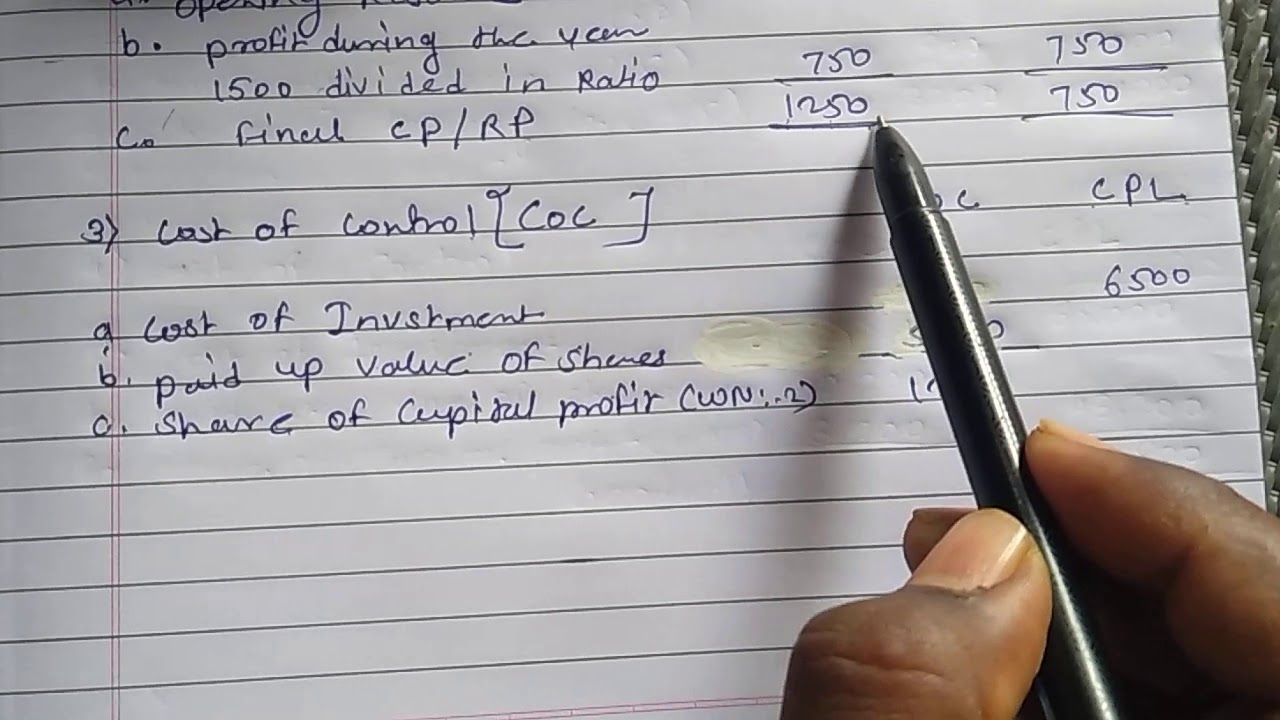 opening
b. profit during the year 750 750
1500 divided in Ratio
c. Final CP/RP 1250 750
3) Cost of control [COC] CPL
a Cost of Invstment 6500
b. paid up value of shares
c. Share of Capital profit (WN:.2)